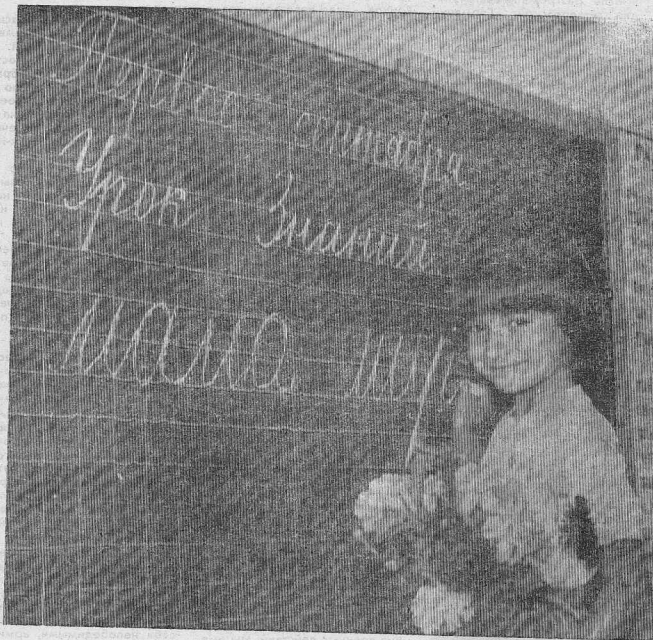 Первое сентября
Урок Знаний
мама